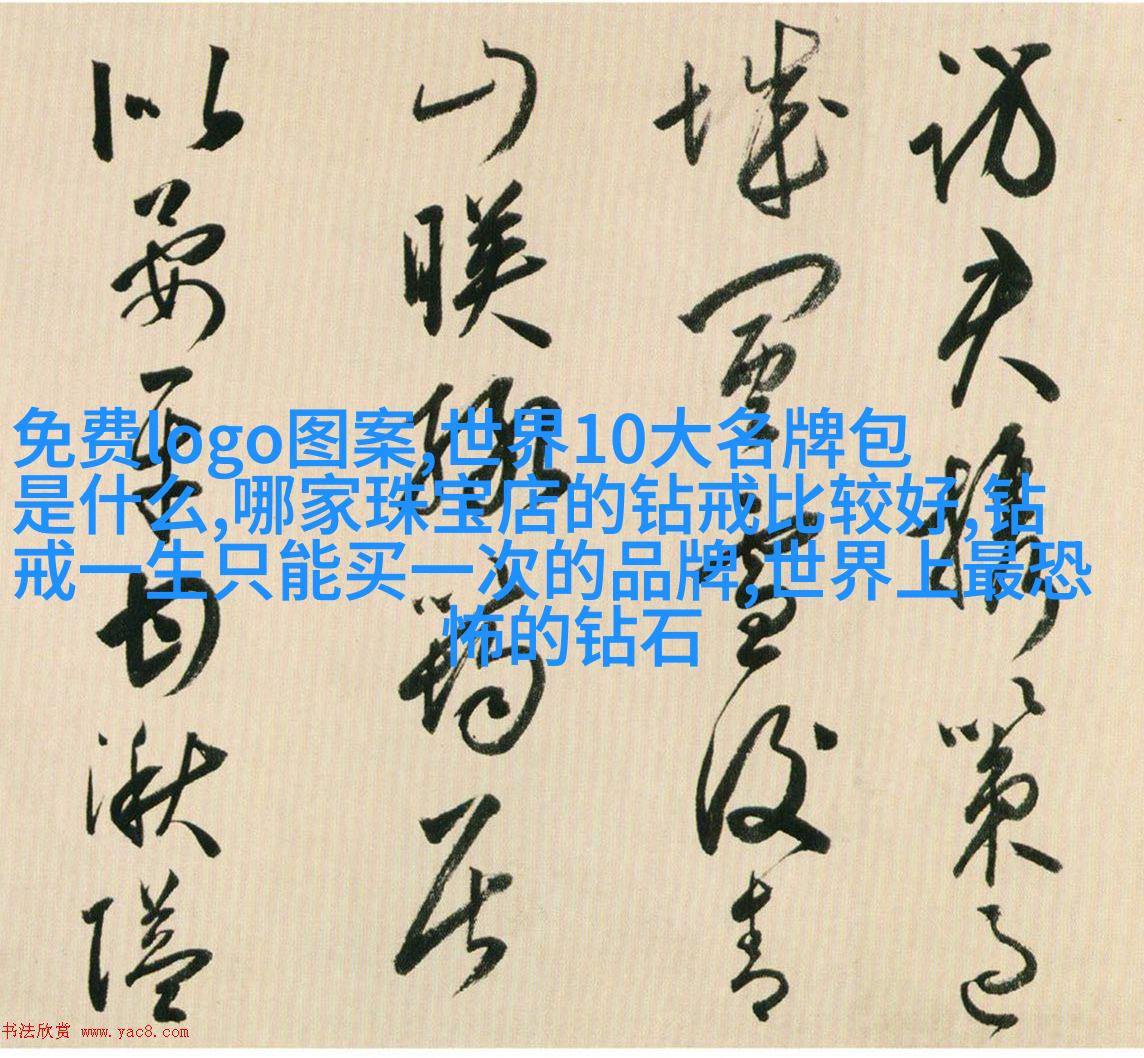 攜策過
城雪後青
山映居
以晏湫隘
免费logo图案,世界10大名牌包
是什么,哪家珠宝店的钻戒比较好,钻
戒一生只能买一次的品牌,世界上最恐
怖的钻石
书法欣赏 www.yac8.com